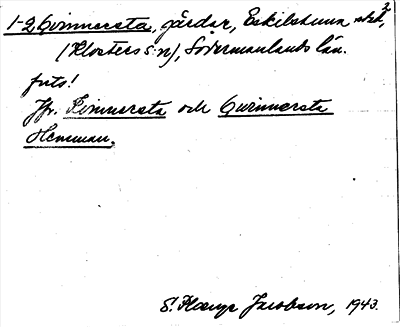 1-2 Qvinnersta, gårdar, Eskilstuna stad, 2
(Klosters s:n), Södermanlands län.
finto!
Jfr. Kinnersta och Qwinnersta
Hemman.
S. Harry Jacobson, 1943.